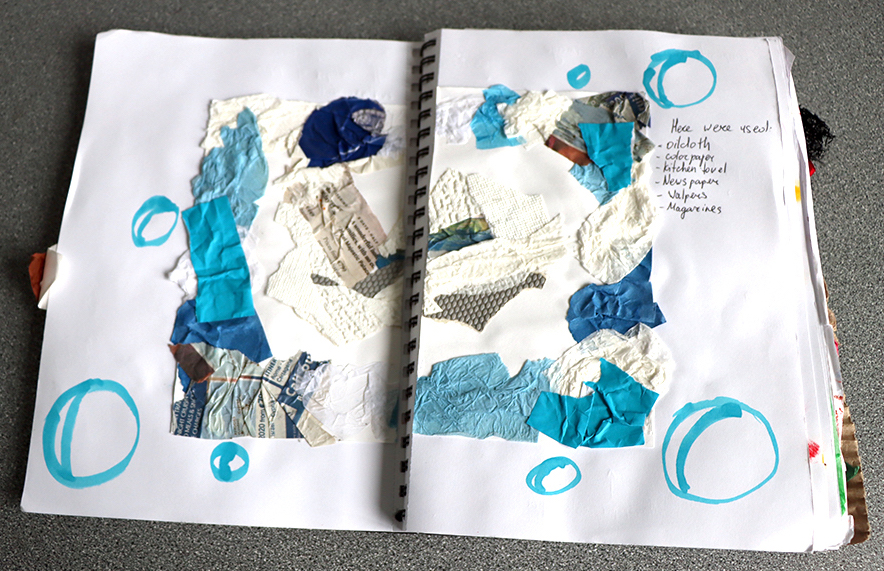 Here were used:
- oilcloth
- color paper
- kitchen towel
- News paper
- Valpers
- Magazines
2020